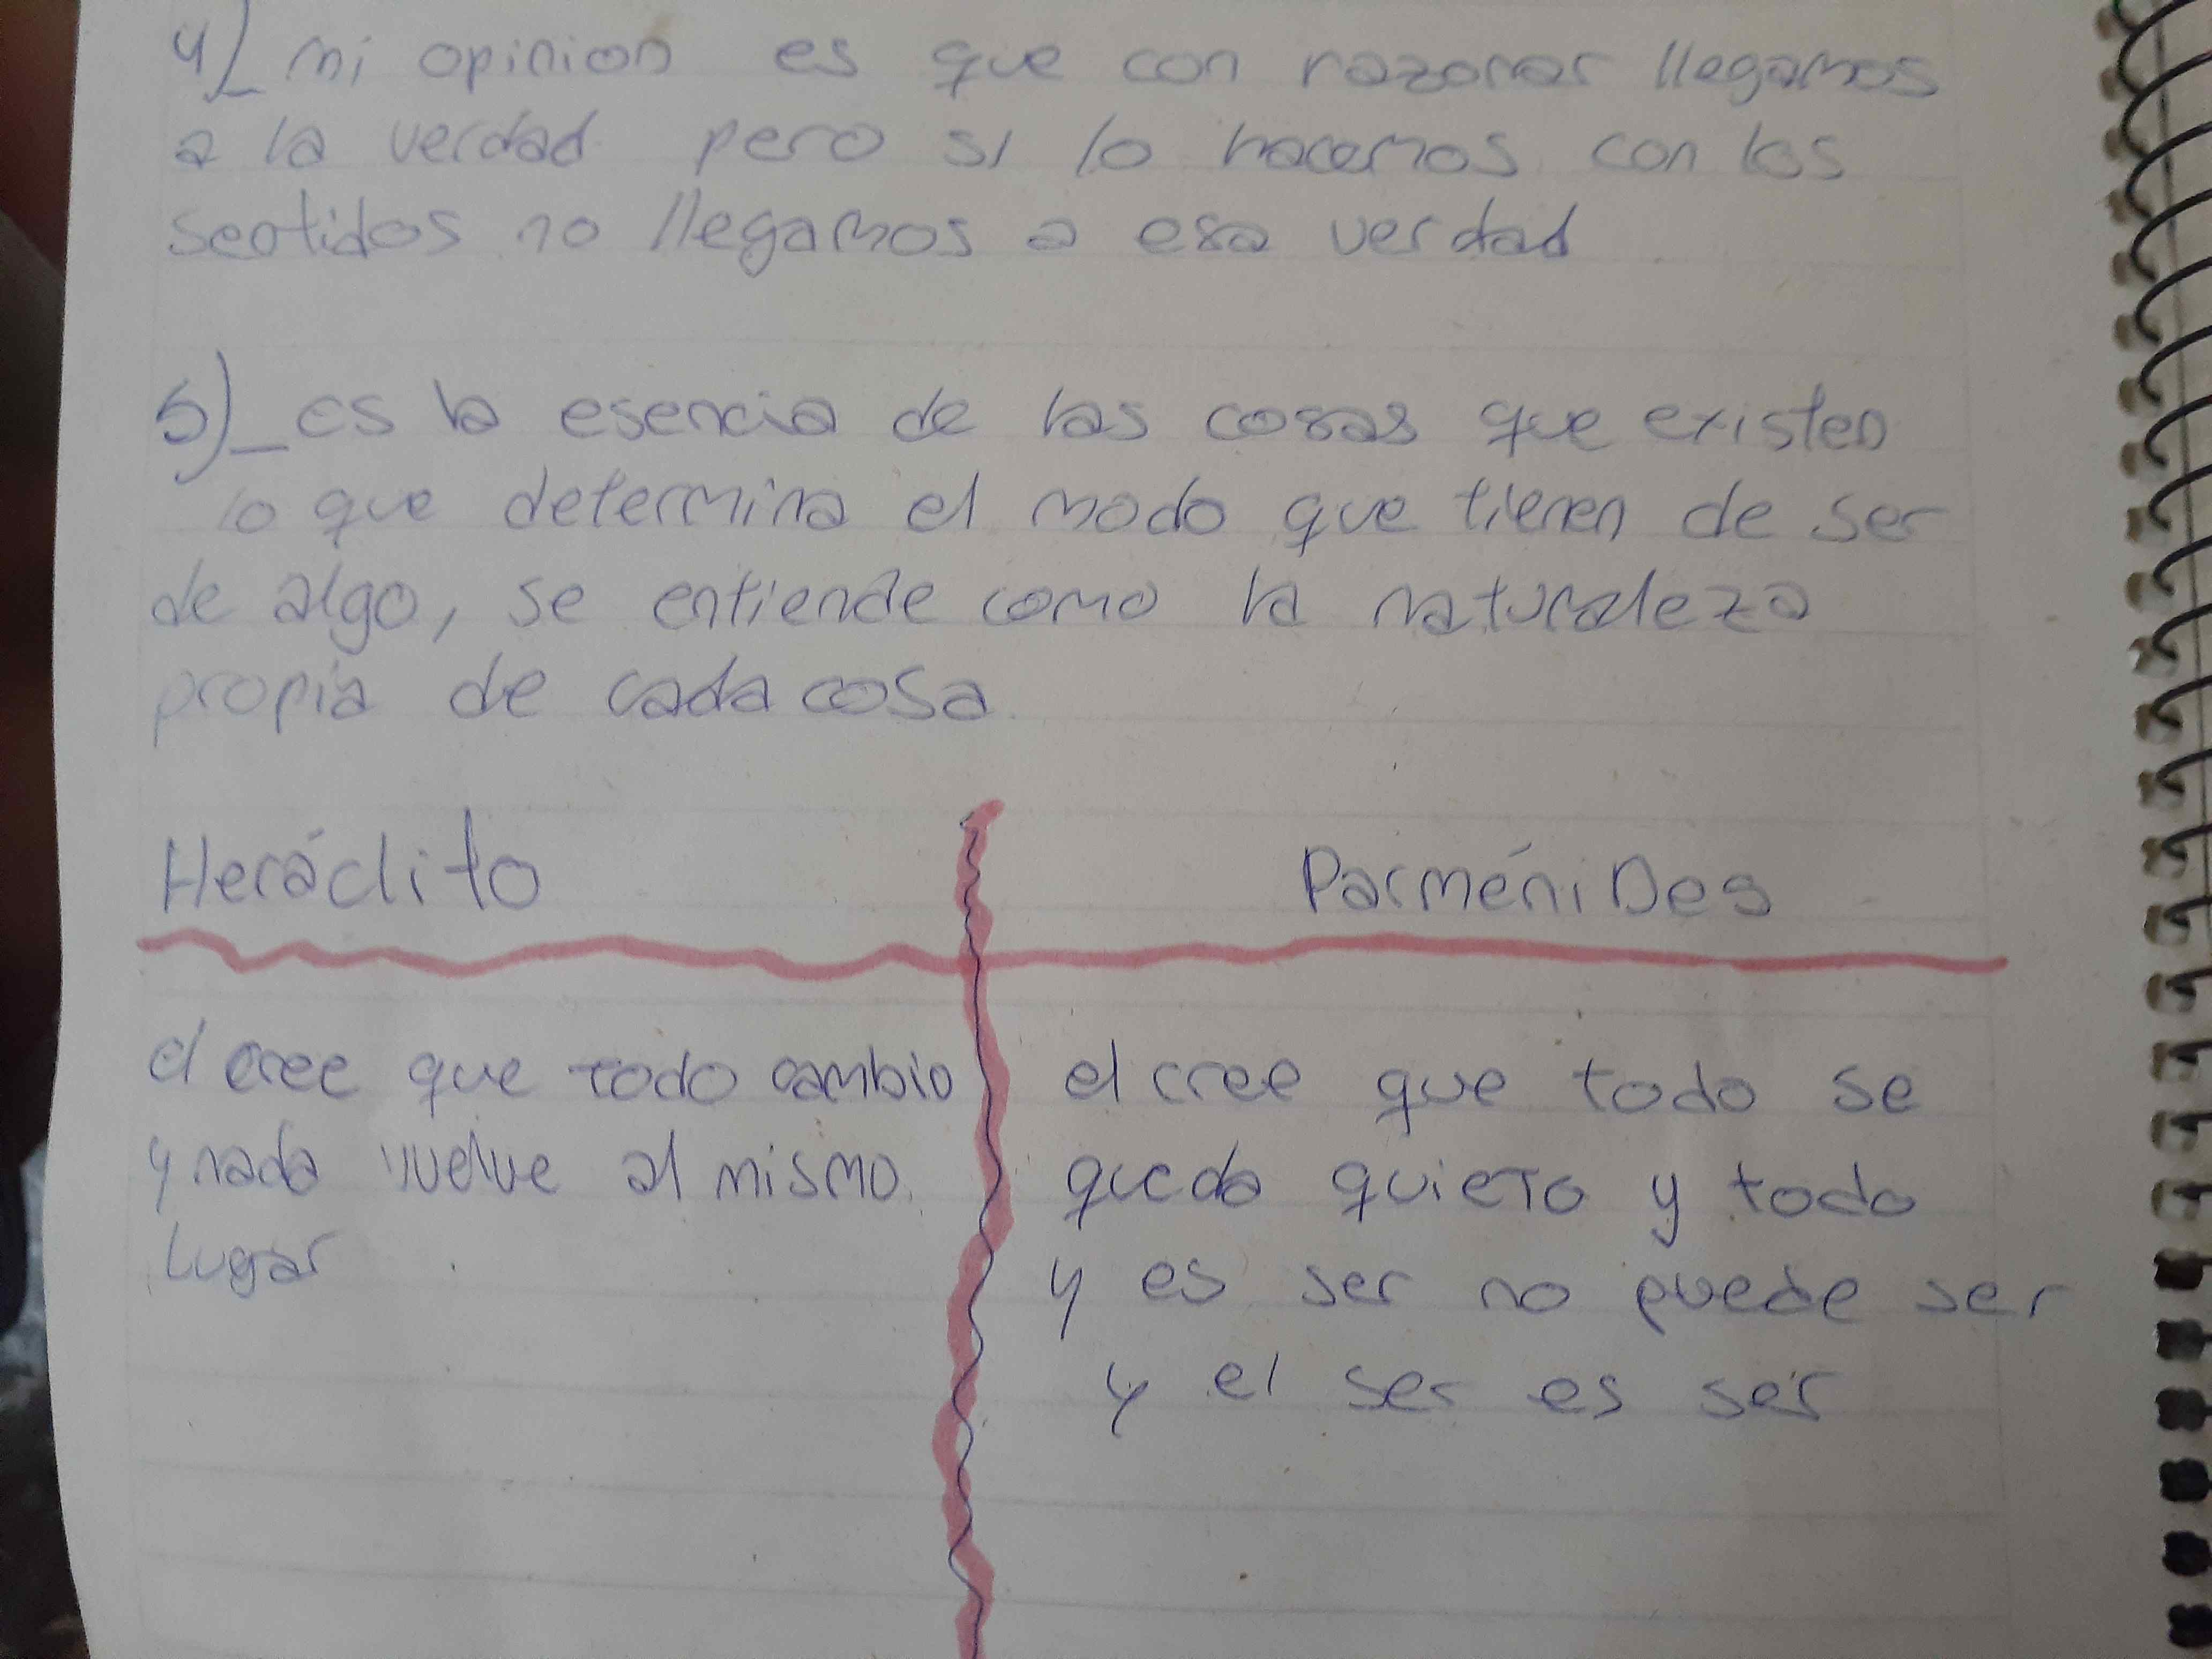 4)_ mi opinion es que con razonar llegamos
a la verdad pero si lo hacemos con los
sentidos no llegamos a esa verdad
5)_ es la esencia de las cosas que existen
lo que determina el modo que tienen de ser
de algo, se entiende como la naturaleza
propia de cada cosa.
Heráclito
ParméniDes
el cree que todo cambio
y nada vuelve al mismo.
Lugar
el cree que todo se
queda quieto y todo
y es ser no puede ser
y el ser es ser